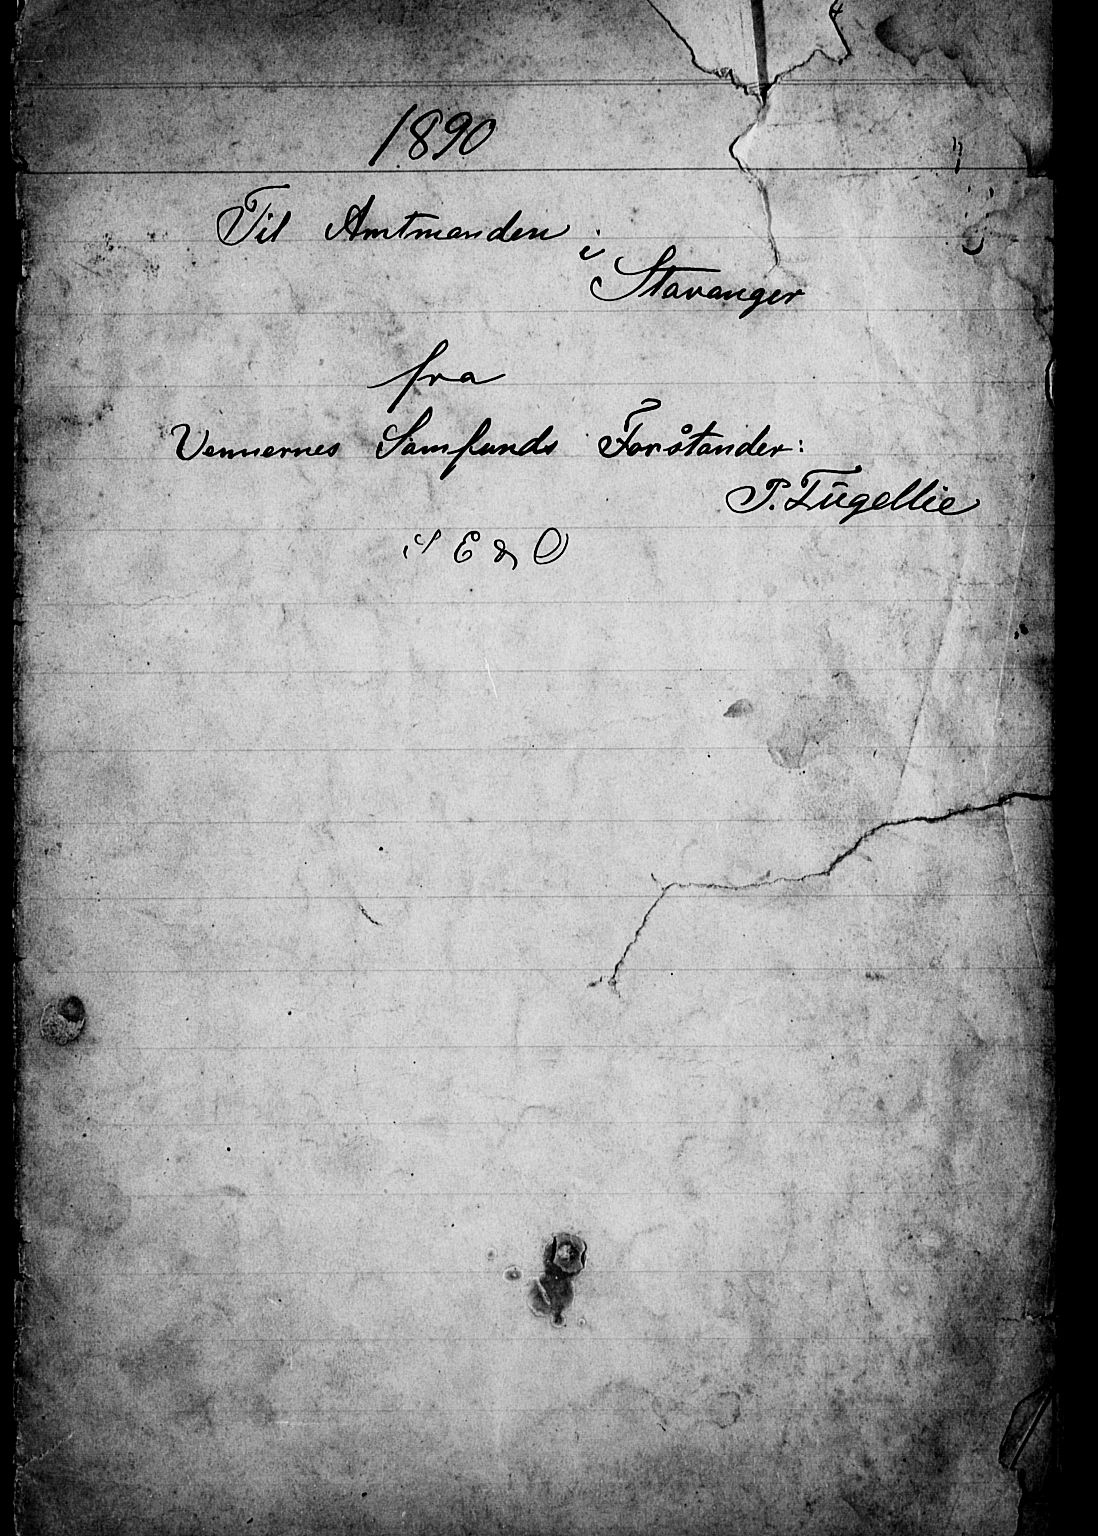 1890
Til Amtmanden
i
Stavanger
fra
Vennernes Samfunds Forstander:
P. Fugellie